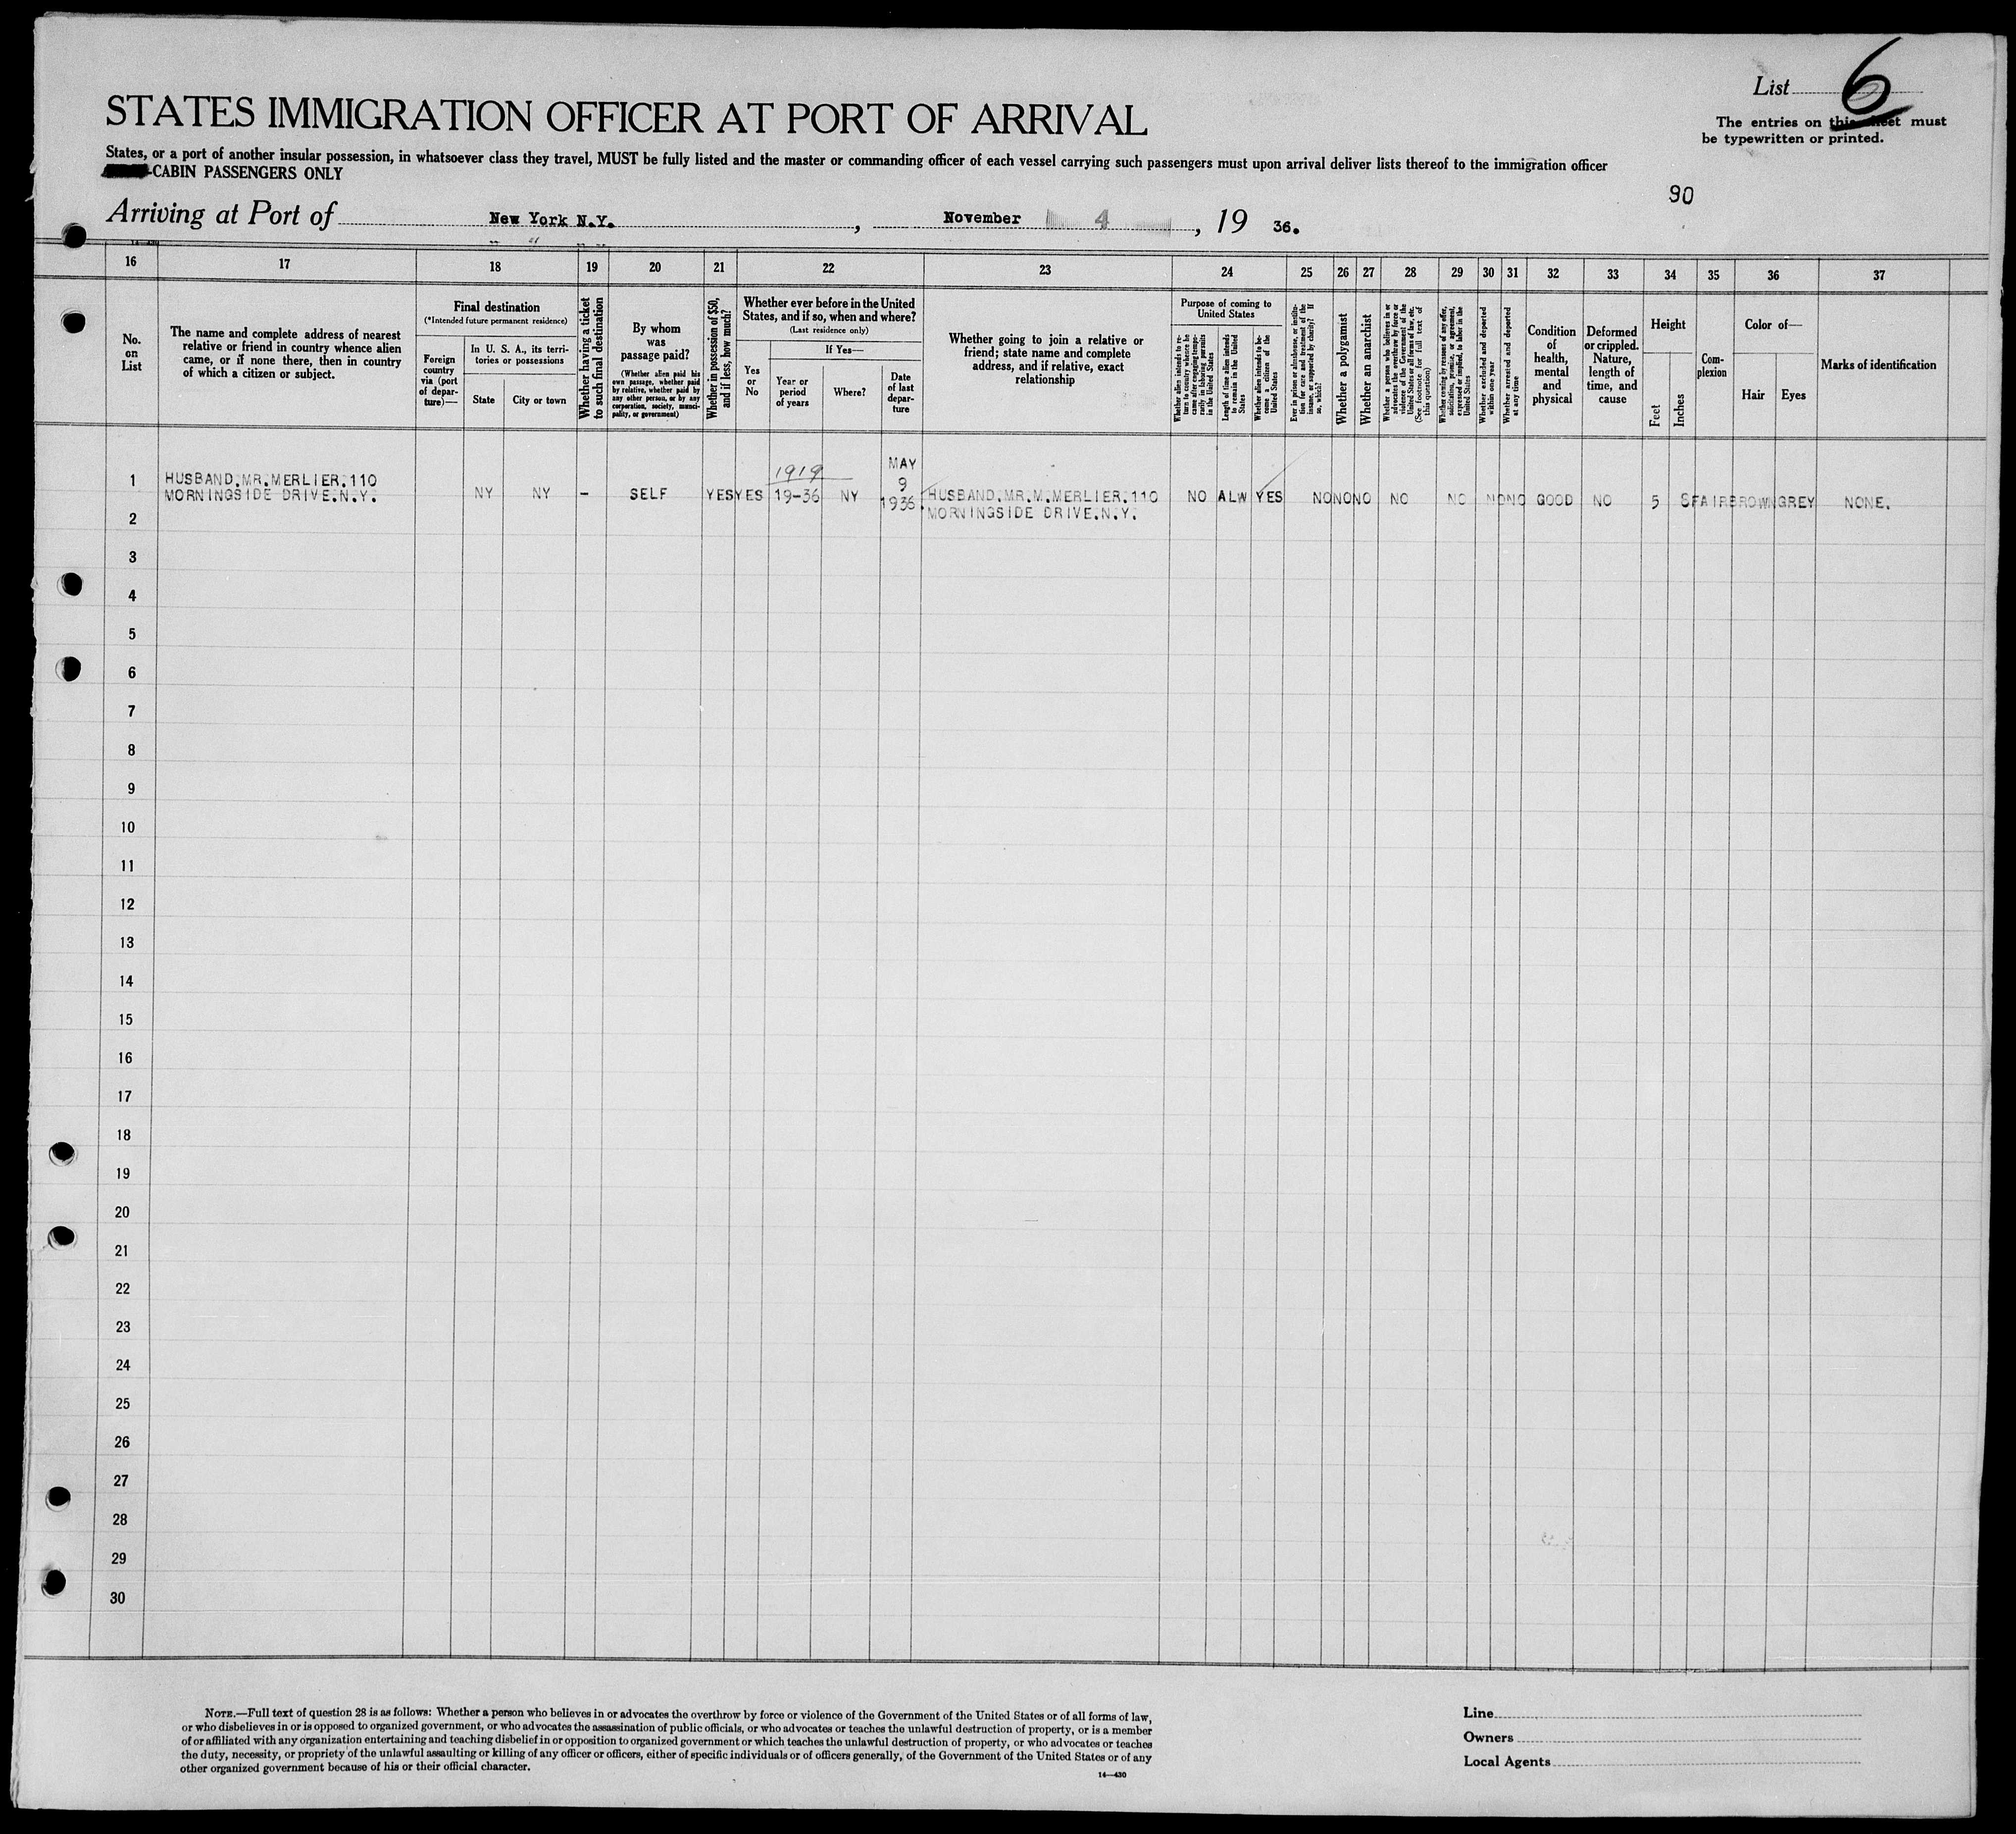 List 6
The entries on this sheet must
be typewritten or printed.
STATES IMMIGRATION OFFICER AT PORT OF ARRIVAL
States, or a port of another insular possession, in whatsoever class they travel, MUST be fully listed and the master or commanding officer of each vessel carrying such passengers must upon arrival deliver lists thereof to the immigration officer
CABIN PASSENGERS ONLY
90
Arriving at Port of New York N.Y., November 4, 19 36.
16 17 18 19 20 21 22 23 24 25 26 27 28 29 30 31 32 33 34 35 36 37
No.
on
List
The name and complete address of nearest
relative or friend in country whence alien
came, or if none there, then in country
of which a citizen or subject.
Final destination
(*Intended future permanent residence)
Foreign
country
via (port
of depar-
ture)—
In U. S. A., its terri-
tories or possessions
State
City or town
Whether having a ticket
to such final destination
By whom
was
passage paid?
(Whether alien paid his
own passage, whether paid
by relative, whether paid by
any other person, or by any
corporation, society, munici-
pality, or government)
Whether in possession of $50,
and if less, how much?
Whether ever before in the United
States, and if so, when and where?
(Last residence only)
Yes
or
No
If Yes—
Year or
period
of years
Where?
Date
of last
depar-
ture
Whether going to join a relative or
friend; state name and complete
address, and if relative, exact
relationship
Purpose of coming to
United States
Whether alien intends to re-
turn to country whence he
came after engaging tempo-
rarily in laboring pursuits
in the United States
Length of time alien intends
to remain in the United
States
Whether alien intends to be-
come a citizen of the
United States
Ever in prison or almshouse, or institu-
tion for care and treatment of the
insane, or supported by charity? If
so, which?
Whether a polygamist
Whether an anarchist
Whether a person who believes in or
advocates the overthrow by force or
violence of the Government of the
United States or all forms of law, etc.
(See footnote for full text of
this question)
Whether coming by reason of any offer,
solicitation, promise, or agreement,
expressed or implied, to labor in the
United States
Whether excluded and deported
within one year
Whether arrested and deported
at any time
Condition
of
health,
mental
and
physical
Deformed
or crippled.
Nature,
length of
time, and
cause
Height
Feet
Inches
Com-
plexion
Color of—
Hair
Eyes
Marks of identification
1 HUSBAND.MR.MERLIER.110
MORNINGSIDE DRIVE.N.Y.
NY NY - SELF YES YES
1919
19-36 NY
MAY
9
1936.
HUSBAND.MR.M.MERLIER.110
MORNINGSIDE DRIVE.N.Y.
NO ALW YES NO NO NO NO NO NO NO GOOD NO 5 FAIR BROWN GREY NONE.
2
3
4
5
6
7
8
9
10
11
12
13
14
15
16
17
18
19
20
21
22
23
24
25
26
27
28
29
30
NOTE.—Full text of question 28 is as follows: Whether a person who believes in or advocates the overthrow by force or violence of the Government of the United States or of all forms of law,
or who disbelieves in or is opposed to organized government, or who advocates the assassination of public officials, or who advocates or teaches the unlawful destruction of property, or is a member
of or affiliated with any organization entertaining and teaching disbelief in or opposition to organized government or which teaches the unlawful destruction of property, or who advocates or teaches
the duty, necessity, or propriety of the unlawful assaulting or killing of any officer or officers, either of specific individuals or of officers generally, of the Government of the United States or of any
other organized government because of his or their official character.
14—430
Line
Owners
Local Agents